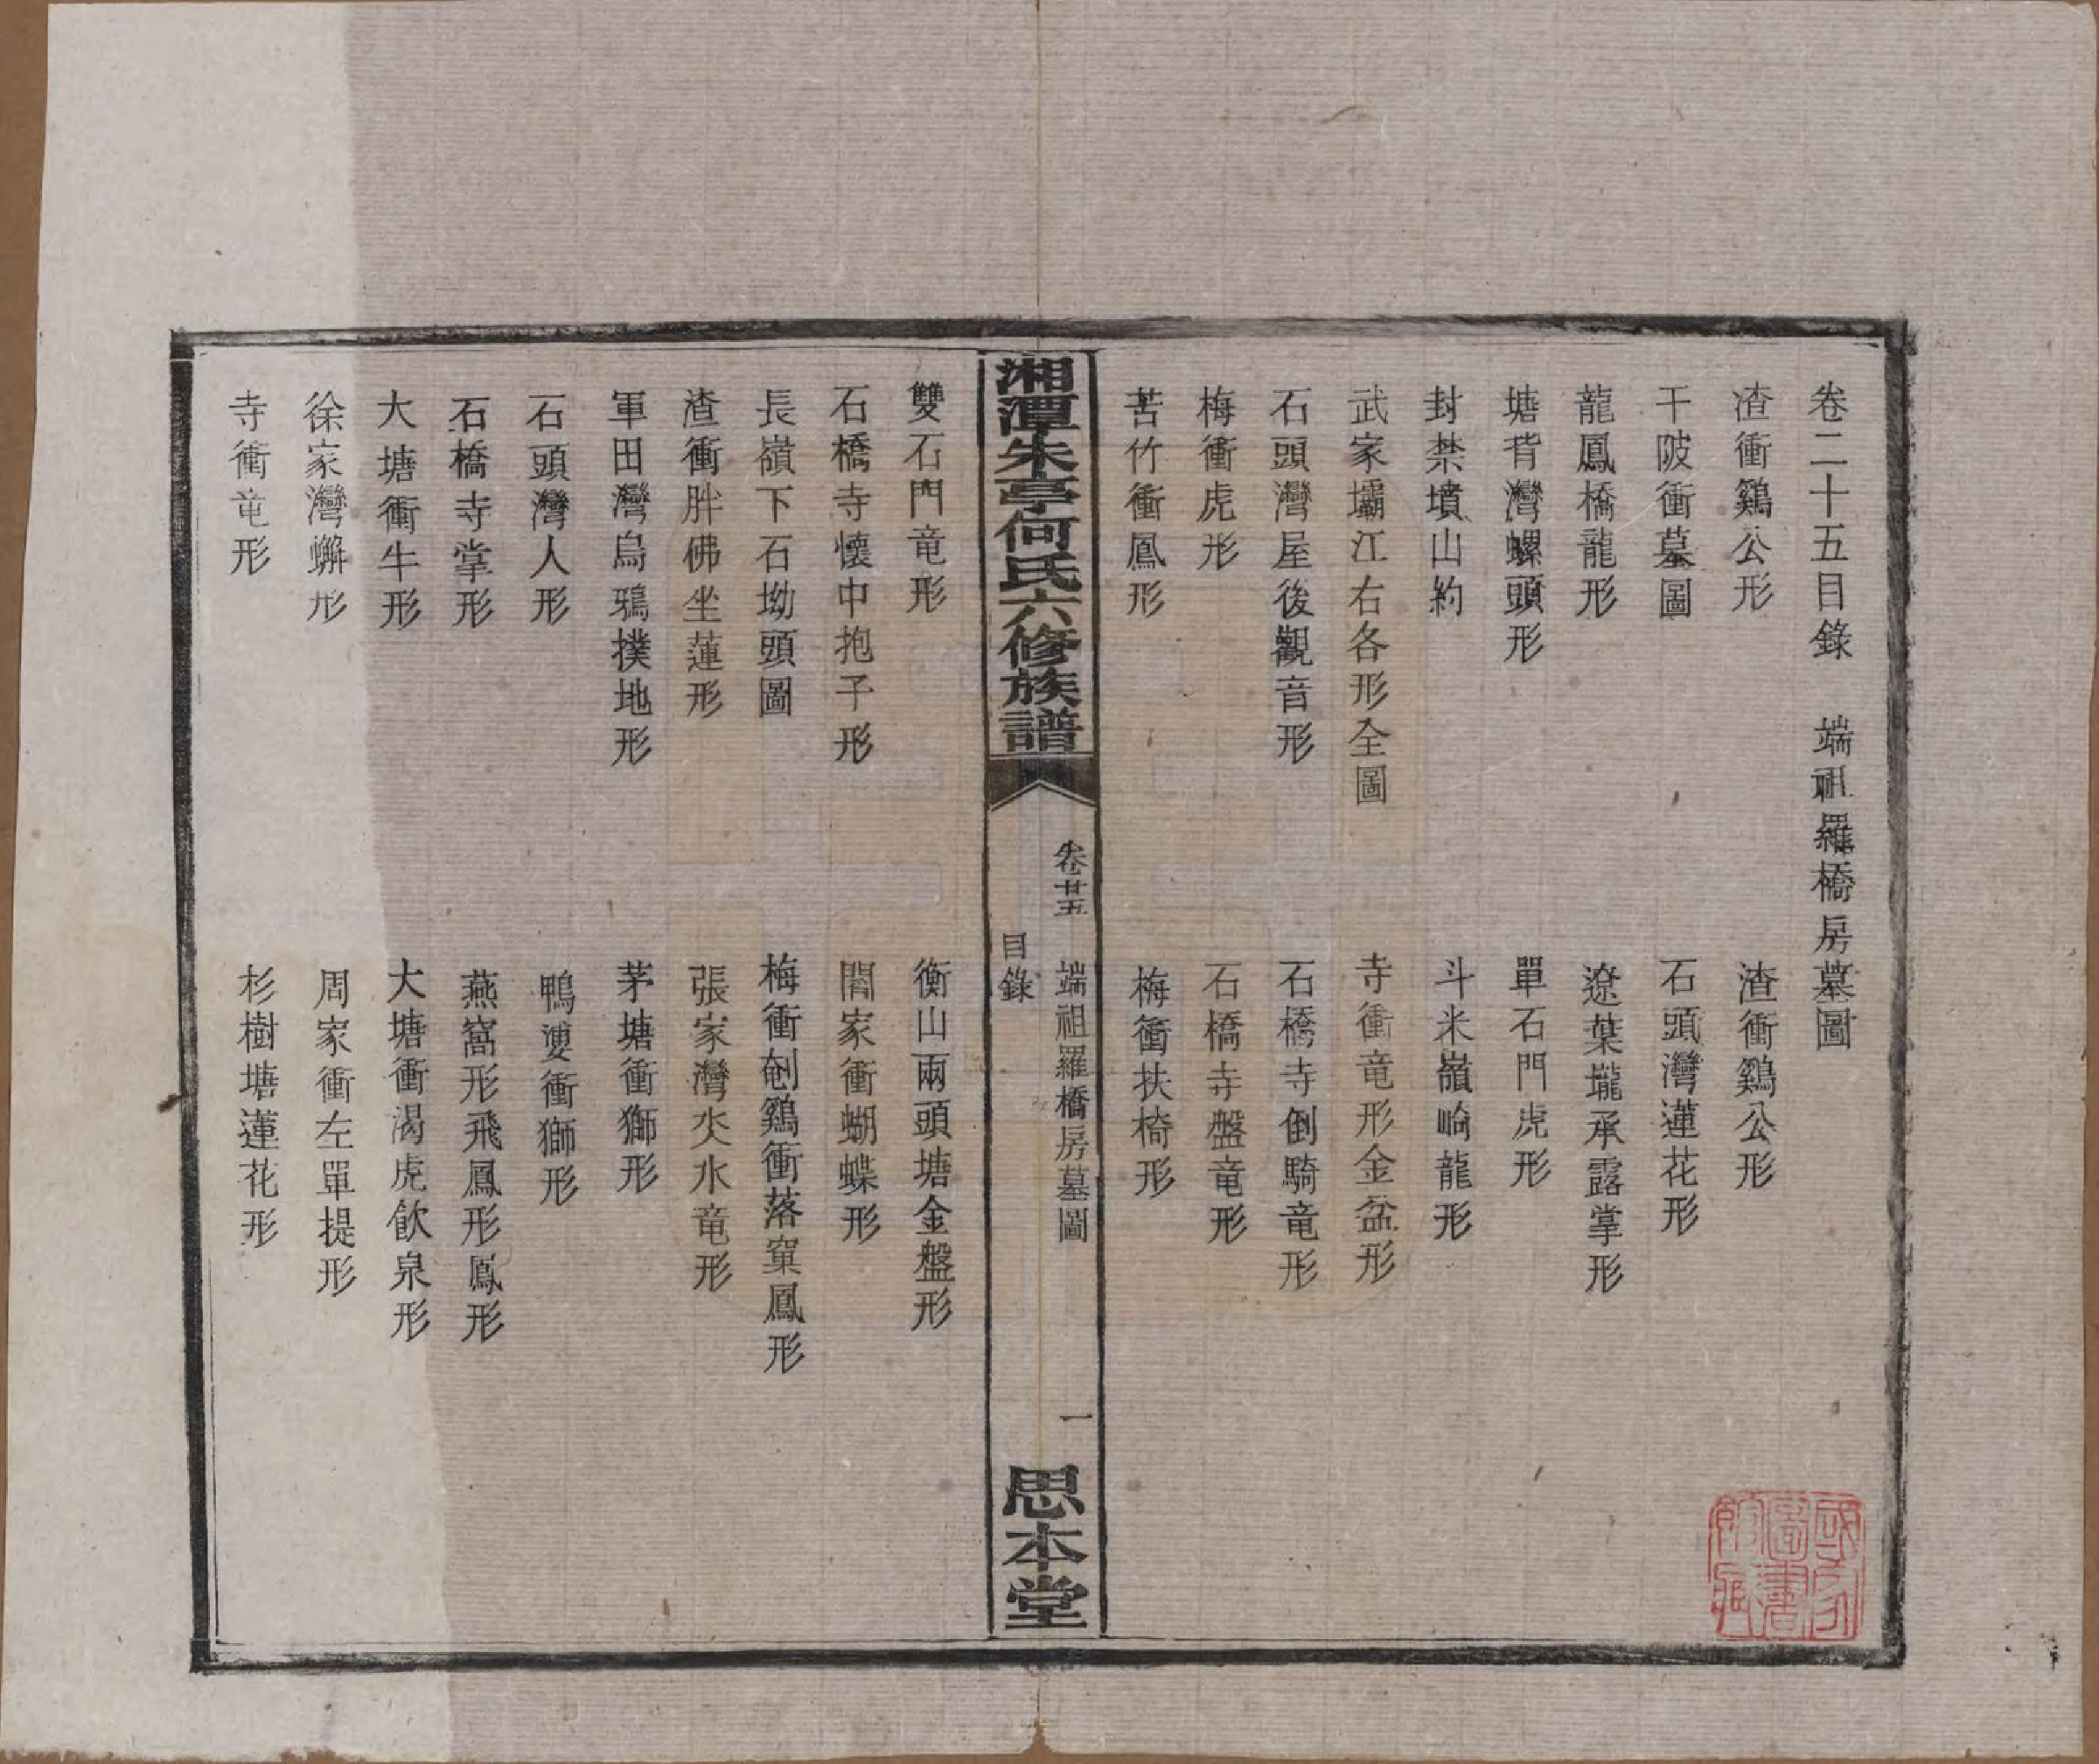 卷二十五目錄　端祖羅橋房墓圖
渣衝鷄公形　渣衝鷄公形
干陂衝墓圖　石頭灣蓮花形
龍鳳橋龍形　遼葉壠承露掌形
塘背灣螺頭形　單石門虎形
封禁墳山約　斗米嶺崎龍形
武家壩江右各形全圖　寺衝竜形金盆形
石頭灣屋後觀音形　石橋寺倒騎竜形
梅衝虎形　石橋寺盤竜形
苦竹衝鳳形　梅衝扶椅形
湘潭朱亭何氏六修族譜
卷廿五　端祖羅橋房墓圖　一
目錄
思本堂
雙石門竜形　衡山兩頭塘金盤形
石橋寺懷中抱子形　閻家衝蝴蝶形
長嶺下石坳頭圖　梅衝刨鷄衝落窠鳳形
渣衝胖佛坐蓮形　張家灣灾水竜形
軍田灣烏鴉撲地形　茅塘衝獅形
石頭灣人形　鴨婆衝獅形
石橋寺掌形　燕窩形飛鳳形鳳形
大塘衝牛形　大塘衝渴虎飲泉形
徐家灣蠏形　周家衝左單提形
寺衝竜形　杉樹塘蓮花形
國家圖書館藏